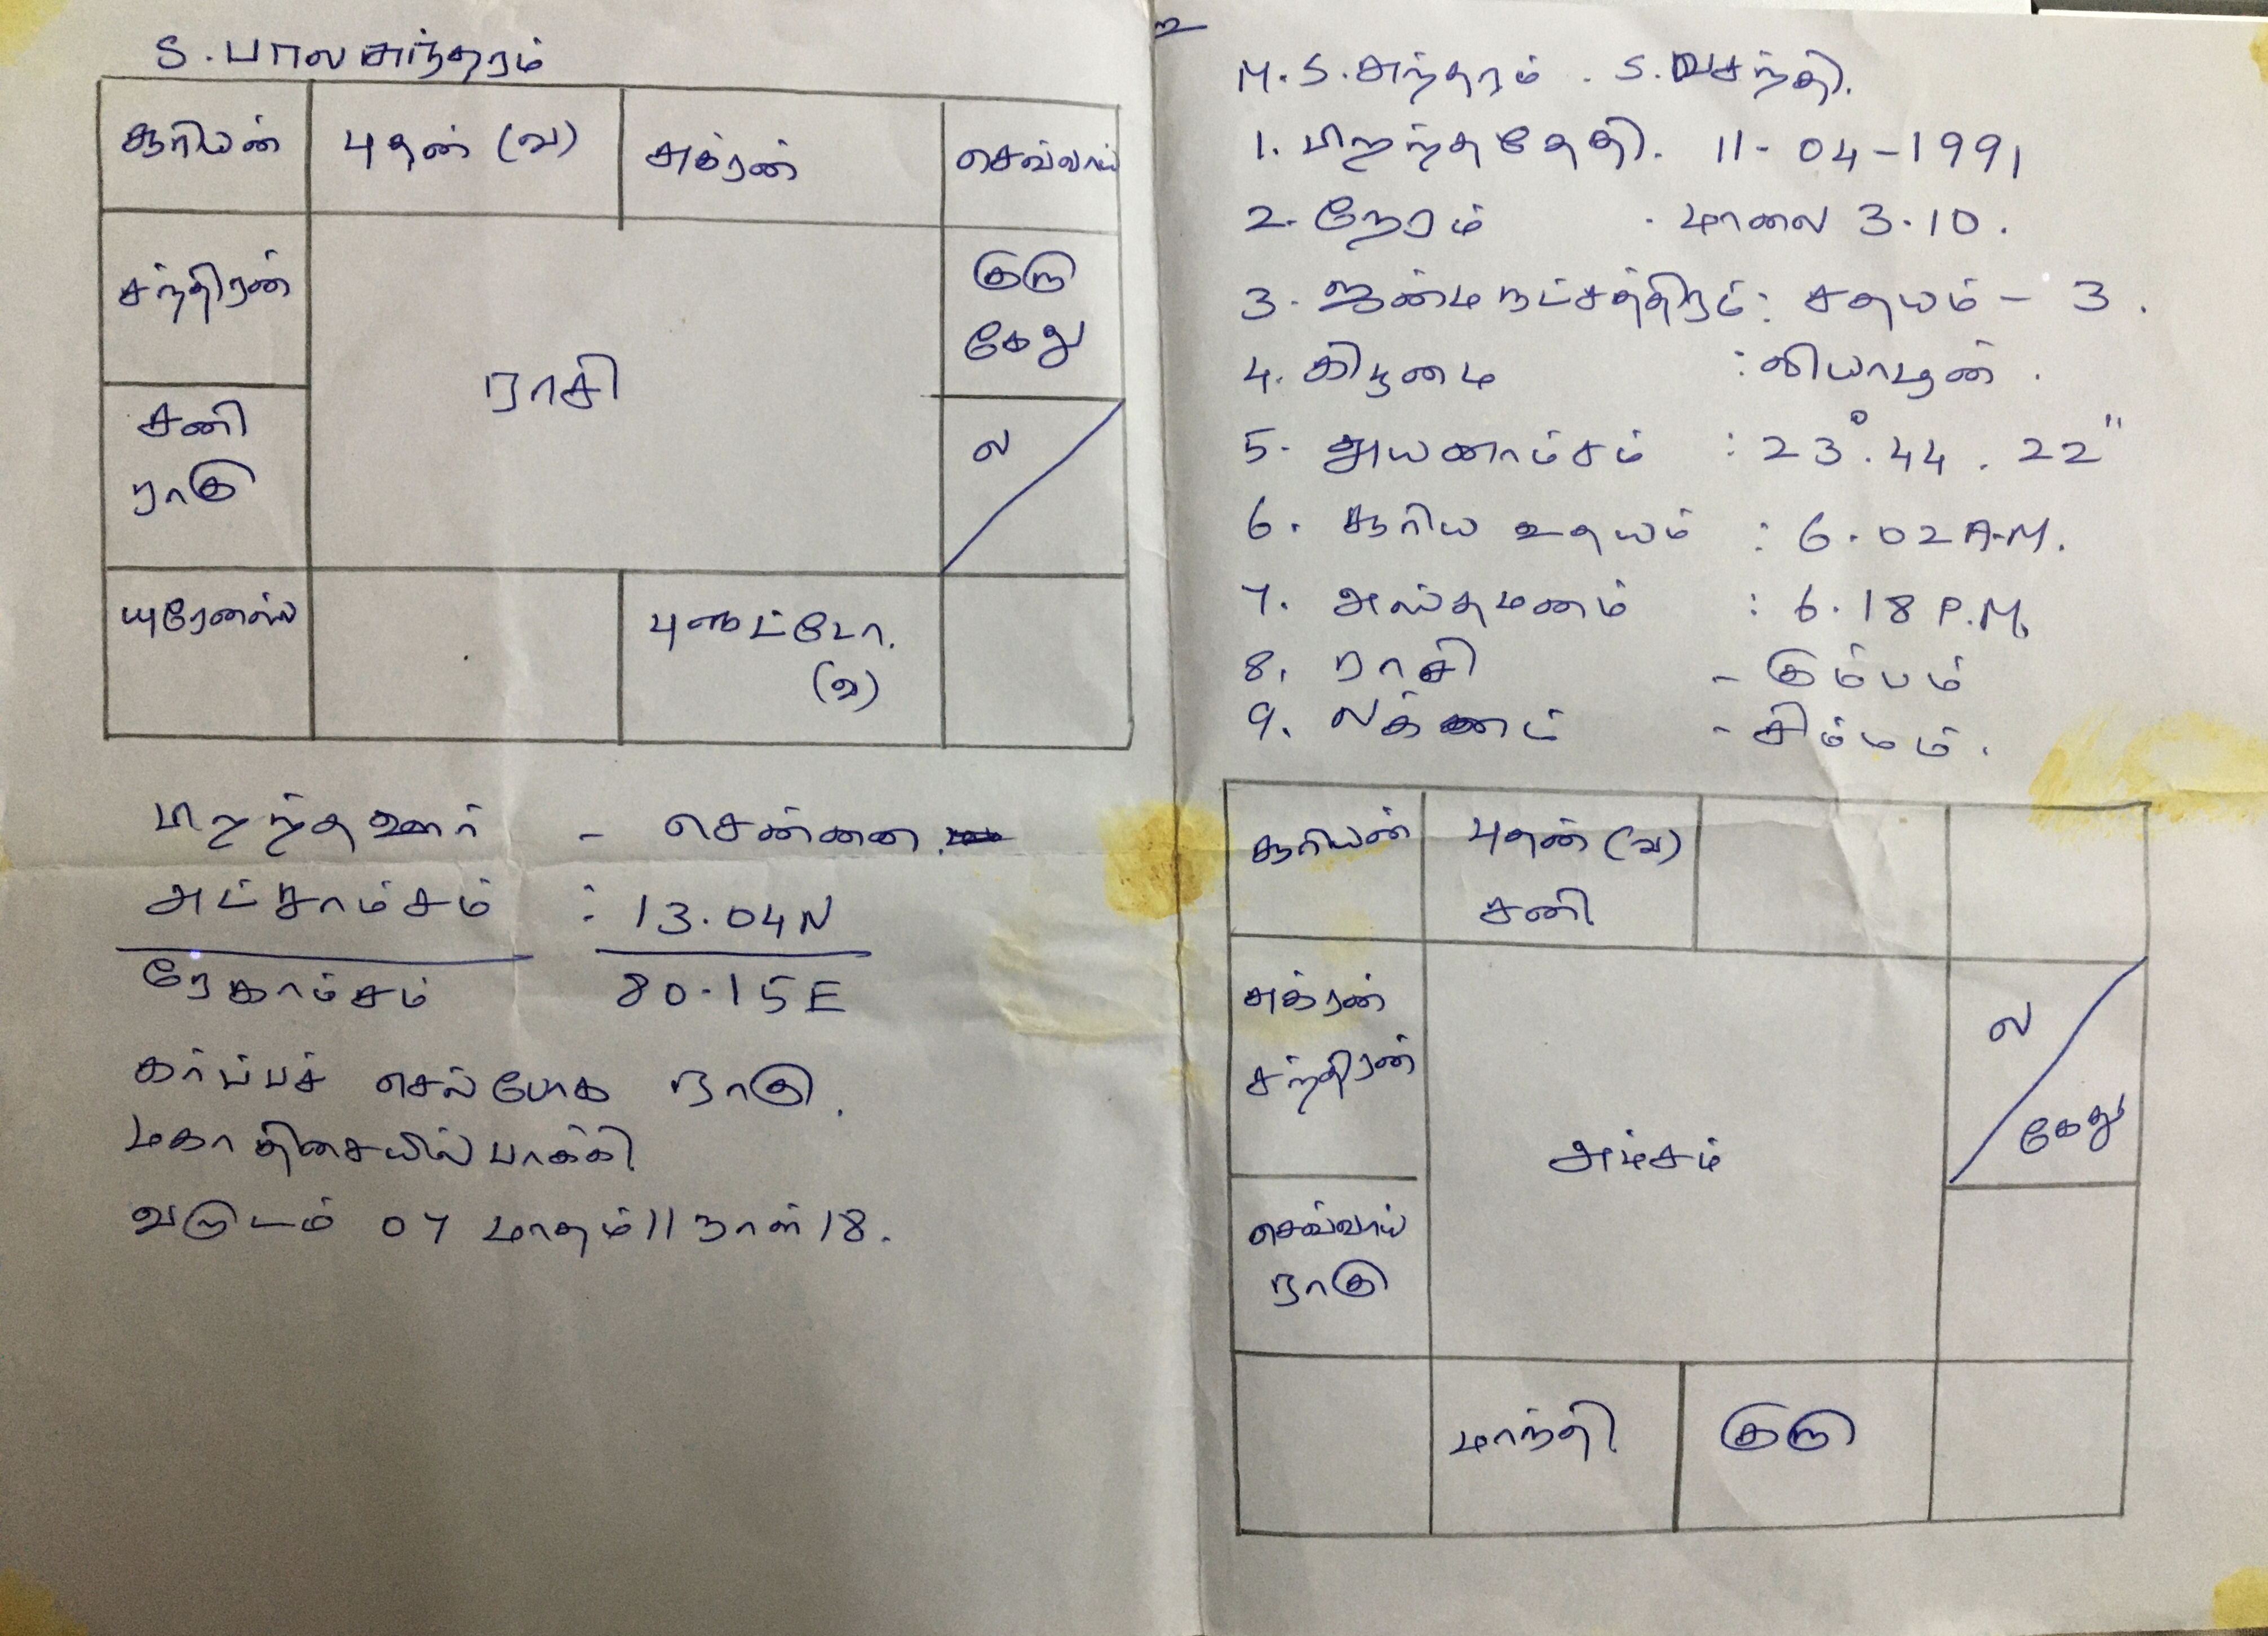 S. பாலசுந்தரம்
சூரியன் புதன் (வ) சுக்ரன் செவ்வாய்
சந்திரன் குரு
கேது
ராசி
சனி
ராகு
ல
யுரேனஸ் புளுட்டோ.
(வ)
பிறந்த ஊர் - சென்னை.
அட்சாம்சம் : 13.04N
ரேகாம்சம் 80.15E
கர்ப்பச் செல் போக ராகு.
மகா திசையில் பாக்கி
வருடம் 07 மாதம் 11 நாள் 18.
M.S. சுந்தரம் . S. வசந்தி.
1. பிறந்த தேதி. 11-04-1991
2. நேரம் . மாலை 3.10.
3. ஜன்ம நட்சத்திரம்: சதயம் - 3.
4. கிழமை : வியாழன்.
5. அயனாம்சம் : 23°.44.22"
6. சூரிய உதயம் : 6.02 A.M.
7. அஸ்தமனம் : 6.18 P.M.
8. ராசி - கும்பம்
9. லக்னம் - சிம்மம்.
சூரியன் புதன் (வ)
சனி
சுக்ரன்
சந்திரன்
ல
கேது
அம்சம்
செவ்வாய்
ராகு
மாந்தி குரு